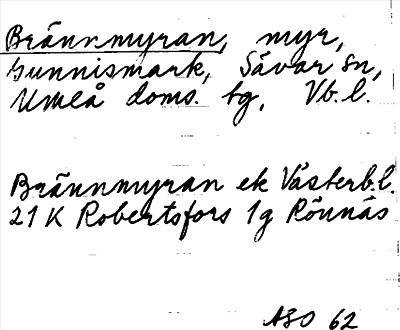 Brännmyran, myr,
Gunnismark, Sävar sn,
Umeå doms. tg, Vb. l.
Brännmyran ek Västerb.l.
21 K Robertsfors 1g Rönnäs
ASO 62